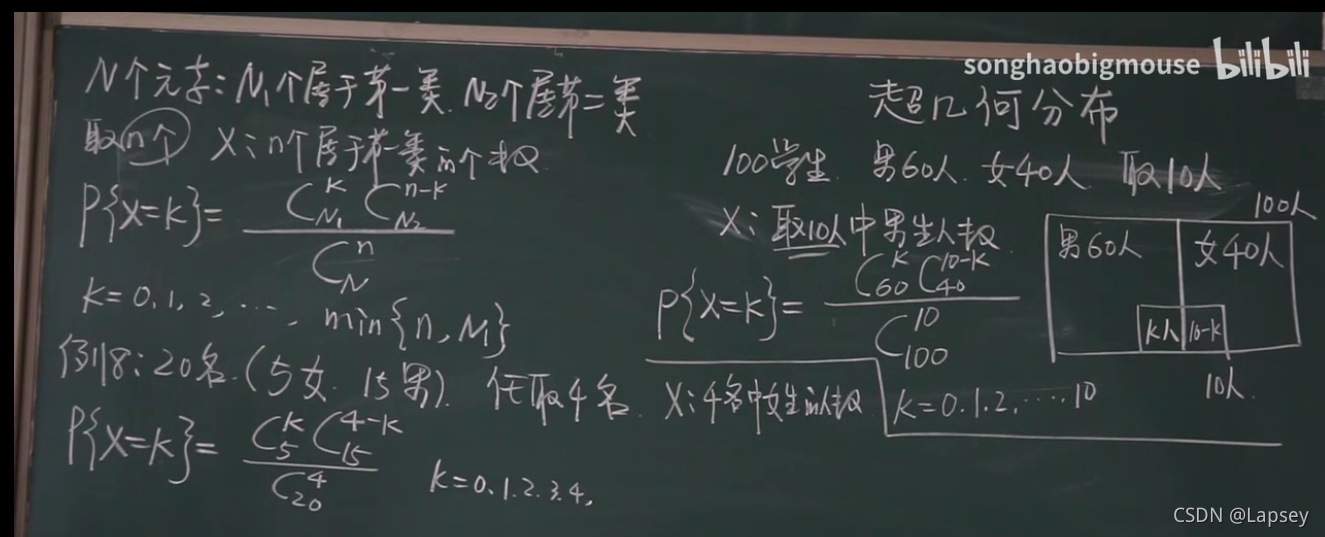 songhaobigmouse bilibili
超几何分布
N个元素:N₁个属于第一类.N₂个属第二类
取n个 X:n个属于第一类的个数
P{X=k}= C_{N₁}^{k} C_{N₂}^{n-k} / C_{N}^{n}
k=0,1,2,…, min{n,M}
例18:20名.(5女.15男). 任取4名. X:4名中女生的人数
P{X=k}= C_{5}^{k} C_{15}^{4-k} / C_{20}^{4} k=0.1.2.3.4.
100学生. 男60人. 女40人 取10人
X:取10人中男生人数
P{X=k}= C_{60}^{k} C_{40}^{10-k} / C_{100}^{10}
k=0.1.2.….10
100人
男60人 女40人
k人 10-k
10人
CSDN @Lapsey